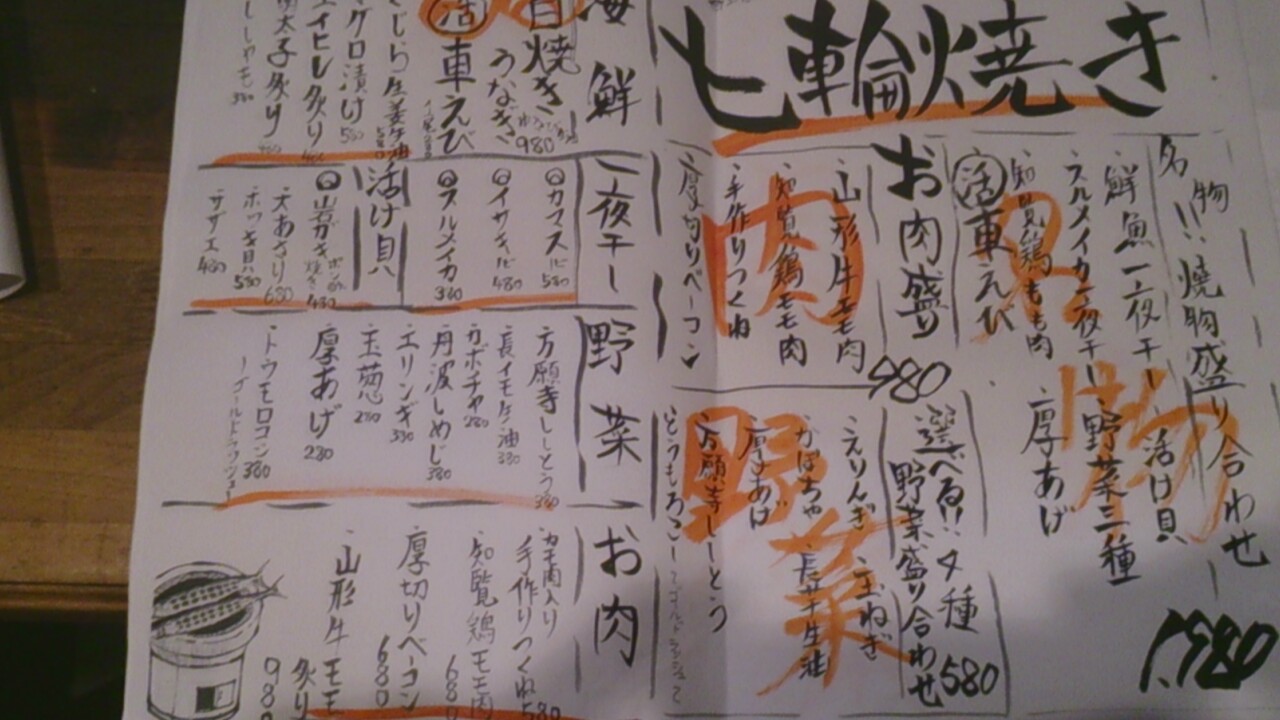 七輪焼き
名物!!焼物盛り合わせ
鮮魚一夜干し
活け貝
スルメイカ一夜干し
野菜三種
知覧鶏もも肉
厚あげ
活車えび
1,980
お肉盛り
980
山形牛モモ肉
知覧鶏モモ肉
手作りつくね
厚切りベーコン
肉
選べる!!4種
野菜盛り合わせ
580
えりんぎ
玉ねぎ
かぼちゃ
長芋生油
厚あげ
万願寺ししとう
とうもろこし
野菜
海鮮
白焼き
うなぎ
980
活車えび
くじら生姜生油
マグロ漬け
580
エイヒレ炙り
明太子炙り
ししゃも
一夜干し
カマス
580
イサキ
480
スルメイカ
380
活け貝
岩がき
480
大あさり
680
ホッキ貝
580
サザエ
480
野菜
万願寺ししとう
380
長イモ生油
380
カボチャ
280
丹波しめじ
380
エリンギ
330
玉葱
280
厚あげ
280
トウモロコシ
380
ゴールドラッシュ
お肉
カモ肉入り
手作りつくね
580
知覧鶏モモ肉
680
厚切りベーコン
680
山形牛モモ
炙り
980